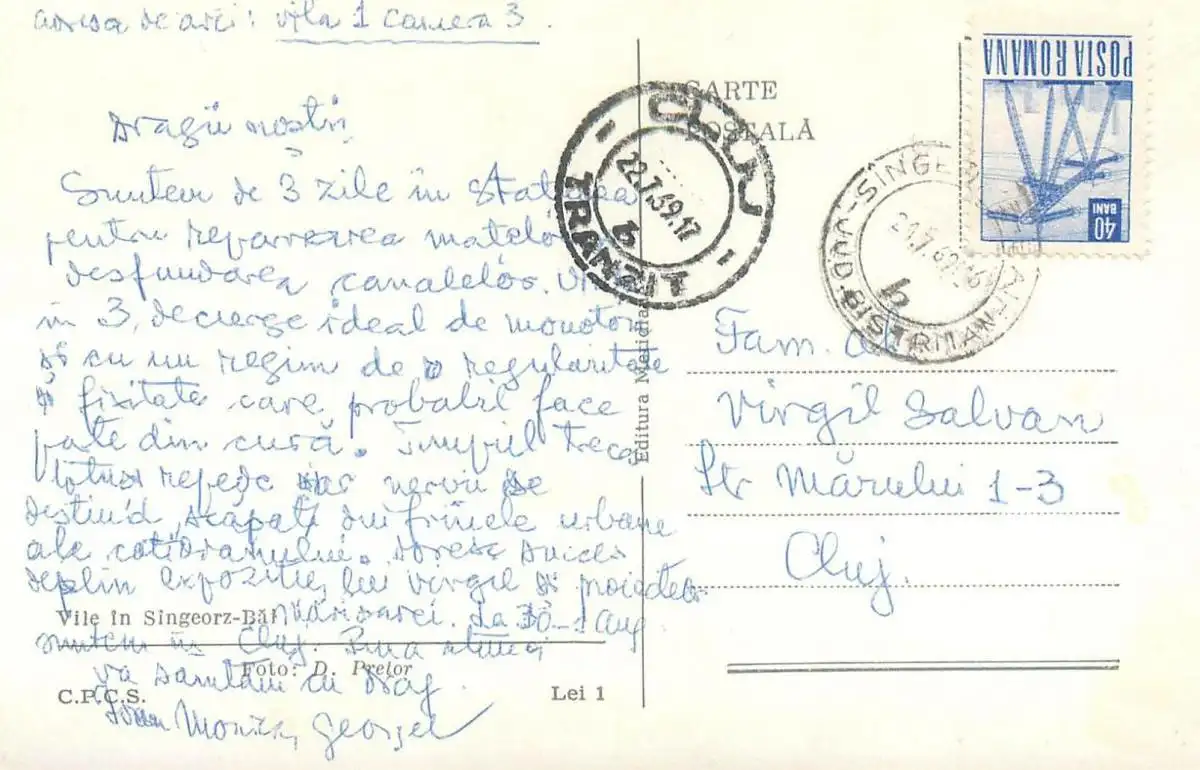 adresa de aici: vila 1 camera 3.
Dragii noștri
Suntem de 3 zile în
pentru repararea matelor
desfundarea canalelor.
în 3, decurge ideal de monoton
și cu un regim de o regularitate
și fixitate care, probabil face
parte din cură. Timpul trece
totuși repede iar nervii se
destind, scăpați din frînele urbane
ale cotidianului. Doresc succes
deplin expoziției lui Virgil și proiectelor
Mărioarei. La 30-1 aug
suntem în Cluj. Pînă atunci
vă sărutăm cu drag
Monica, Georgel
Vile în Singeorz-Băi
Foto: D. Prelor
C.P.C.S.
Lei 1
Editura Meridiane
CARTE
POȘTALĂ
CLUJ
22.7.69.17
b
TRANZIT
JUD. BISTRIȚA N
b
POSTA ROMANA
40
BANI
Fam. al
Virgil Salvan
Str Mărului 1-3
Cluj.